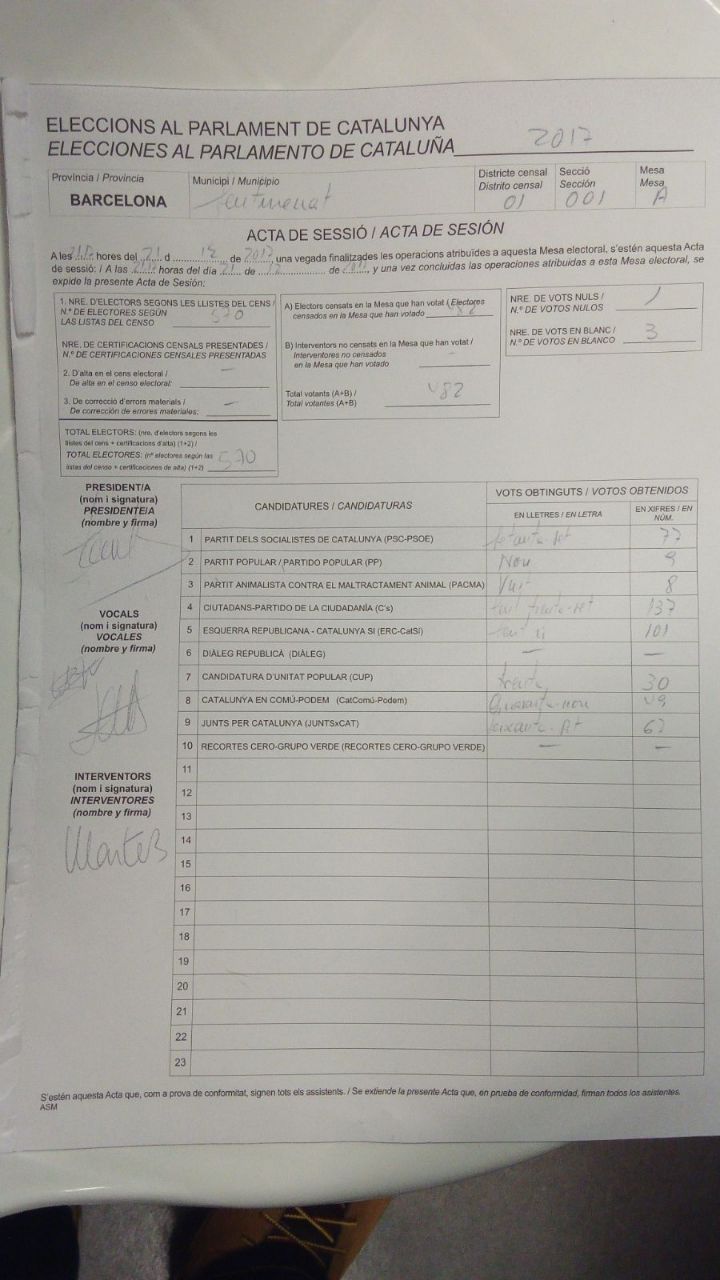 ELECCIONS AL PARLAMENT DE CATALUNYA
ELECCIONES AL PARLAMENTO DE CATALUÑA 2017
Provincia / Provincia
BARCELONA
Municipi / Municipio
Sentmenat
Districte censal
Distrito censal
01
Secció
Sección
001
Mesa
Mesa
A
ACTA DE SESSIÓ / ACTA DE SESIÓN
A les hores del 21 d 12 de 2017, una vegada finalitzades les operacions atribuïdes a aquesta Mesa electoral, s'estén aquesta Acta
de sessió: / A las horas del día 21 de 12 de 2017, y una vez concluidas las operaciones atribuidas a esta Mesa electoral, se
expide la presente Acta de Sesión:
1. NRE. D'ELECTORS SEGONS LES LLISTES DEL CENS /
N.º DE ELECTORES SEGÚN
LAS LISTAS DEL CENSO 570
NRE. DE CERTIFICACIONS CENSALS PRESENTADES /
N.º DE CERTIFICACIONES CENSALES PRESENTADAS
2. D'alta en el cens electoral / –
De alta en el censo electoral:
3. De correcció d'errors materials / –
De corrección de errores materiales:
TOTAL ELECTORS: (nre. d'electors segons les
llistes del cens + certificacions d'alta) (1+2) /
TOTAL ELECTORES: (nº electores según las
listas del censo + certificaciones de alta) (1+2) 570
A) Electors censats en la Mesa que han votat / Electores
censados en la Mesa que han votado 482
B) Interventors no censats en la Mesa que han votat /
Interventores no censados –
en la Mesa que han votado
Total votants (A+B) /
Total votantes (A+B) 482
NRE. DE VOTS NULS /
N.º DE VOTOS NULOS 1
NRE. DE VOTS EN BLANC /
N.º DE VOTOS EN BLANCO 3
PRESIDENT/A
(nom i signatura)
PRESIDENTE/A
(nombre y firma)
VOCALS
(nom i signatura)
VOCALES
(nombre y firma)
INTERVENTORS
(nom i signatura)
INTERVENTORES
(nombre y firma)
CANDIDATURES / CANDIDATURAS
VOTS OBTINGUTS / VOTOS OBTENIDOS
EN LLETRES / EN LETRA
EN XIFRES / EN
NÚM.
1 PARTIT DELS SOCIALISTES DE CATALUNYA (PSC-PSOE) setanta-set 77
2 PARTIT POPULAR / PARTIDO POPULAR (PP) Nou 9
3 PARTIT ANIMALISTA CONTRA EL MALTRACTAMENT ANIMAL (PACMA) Vuit 8
4 CIUTADANS-PARTIDO DE LA CIUDADANÍA (C's) cent trenta-set 137
5 ESQUERRA REPUBLICANA - CATALUNYA SÍ (ERC-CatSí) cent u 101
6 DIÀLEG REPUBLICÀ (DIÀLEG) – –
7 CANDIDATURA D'UNITAT POPULAR (CUP) trenta 30
8 CATALUNYA EN COMÚ-PODEM (CatComú-Podem) Quaranta-nou 49
9 JUNTS PER CATALUNYA (JUNTSxCAT) seixanta-set 67
10 RECORTES CERO-GRUPO VERDE (RECORTES CERO-GRUPO VERDE) – –
11
12
13
14
15
16
17
18
19
20
21
22
23
S'estén aquesta Acta que, com a prova de conformitat, signen tots els assistents. / Se extiende la presente Acta que, en prueba de conformidad, firman todos los asistentes.
ASM